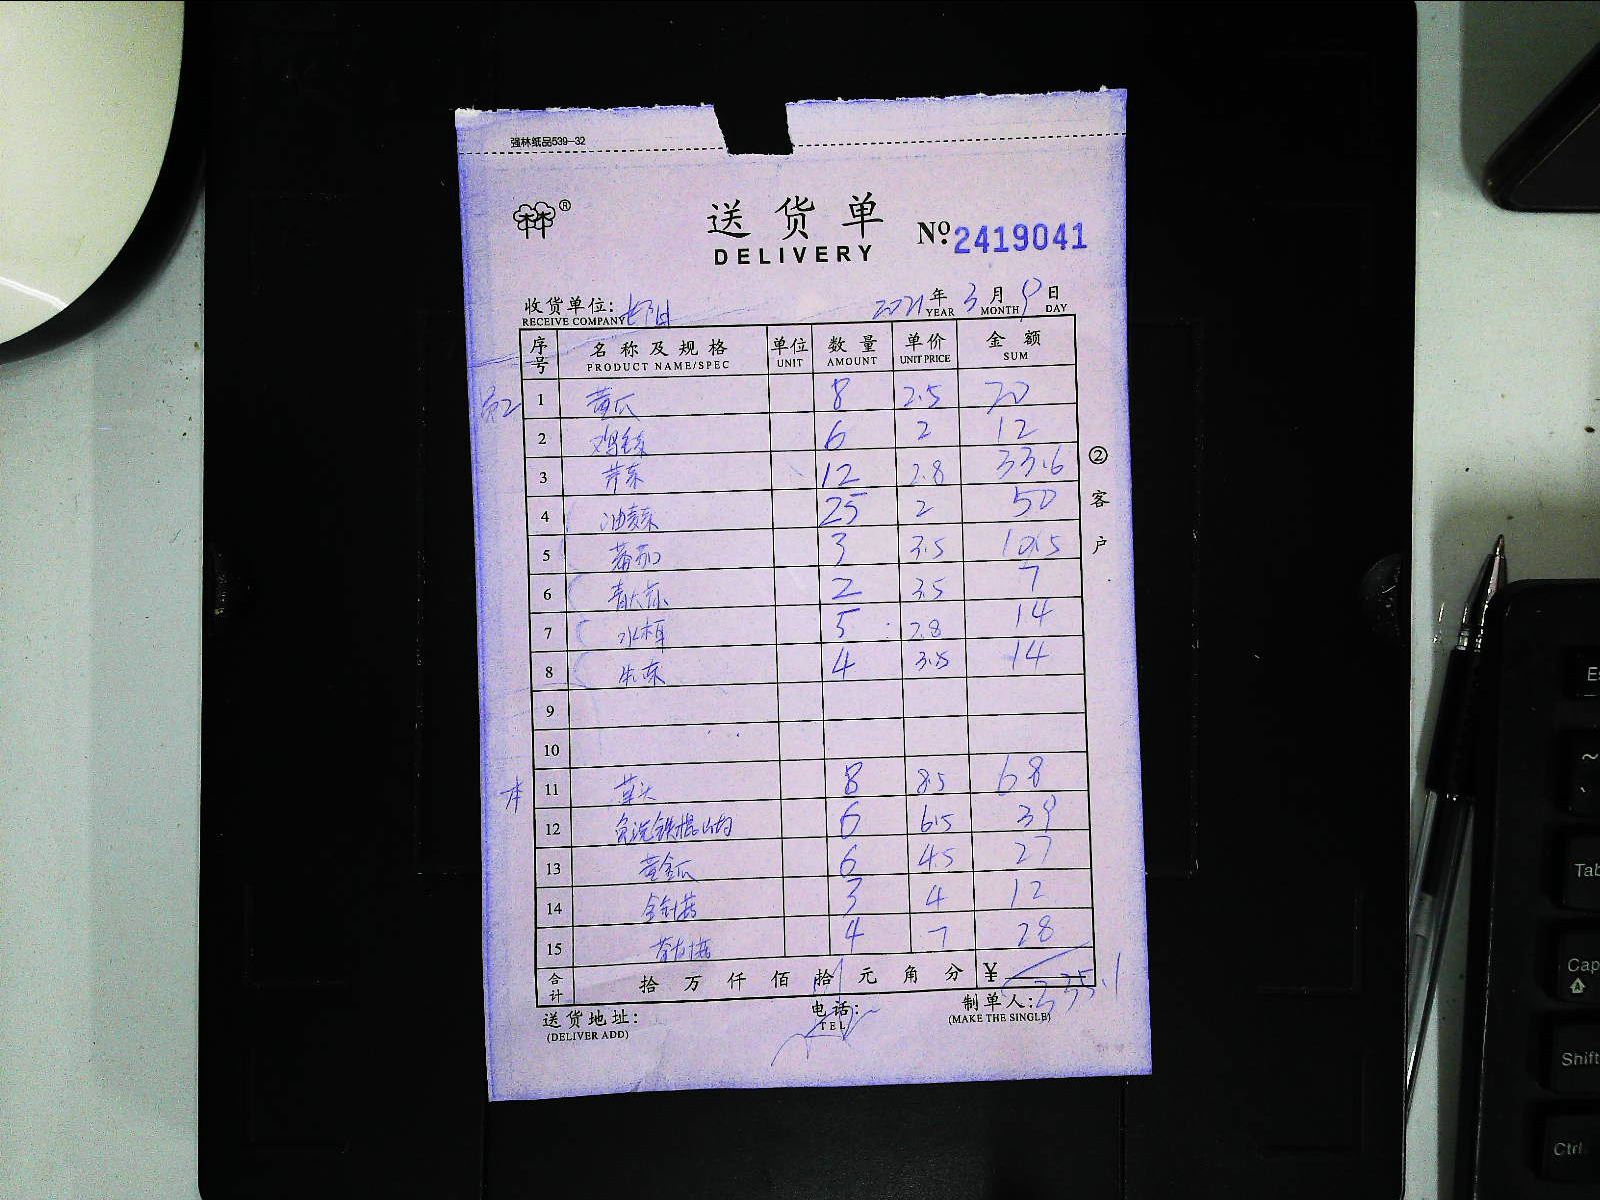 强林纸品539-32
®
送货单
DELIVERY
No. 2419041
收货单位:
RECEIVE COMPANY
2021年3月9日
YEAR MONTH DAY
序号 名称及规格 单位 数量 单价 金额
PRODUCT NAME/SPEC UNIT AMOUNT UNIT PRICE SUM
1 黄瓜 8 2.5 20
2 6 2 12
3 芹菜 12 2.8 33.6
4 油麦菜 25 2 50
5 蕃茄 3 3.5 10.5
6 2 3.5 7
7 水木耳 5 2.8 14
8 生菜 4 3.5 14
9
10
本
11 草头 8 8.5 68
12 免洗铁棍山药 6 6.5 39
13 黄金瓜 6 4.5 27
14 金针菇 3 4 12
15 4 7 28
合计 拾万仟佰拾元角分 ¥ 335.1
②客户
送货地址:
(DELIVER ADD)
电话:
TEL
制单人:
(MAKE THE SINGLE)
Tab
Cap
Shift
Ctrl